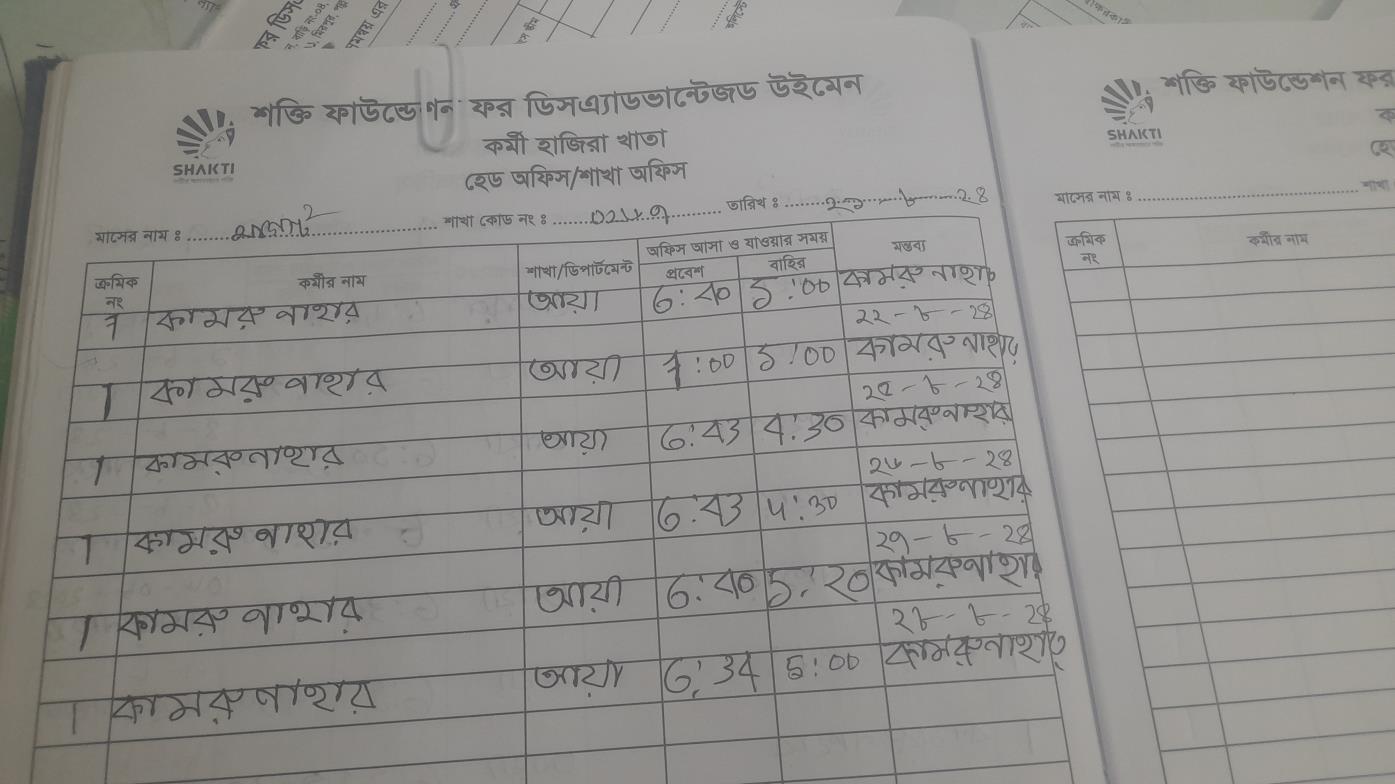 শক্তি ফাউন্ডেশন ফর ডিসএ্যাডভান্টেজড উইমেন
SHAKTI
কর্মী হাজিরা খাতা
হেড অফিস/শাখা অফিস
মাসের নাম : শাখা কোড নং : তারিখ :
ক্রমিক নং কর্মীর নাম শাখা/ডিপার্টমেন্ট অফিস আসা ও যাওয়ার সময় মন্তব্য
প্রবেশ বাহির
1 কামরুনাহার আয়া 6:40 5:00 কামরুনাহার
২২-৮-২৪
1 কামরুনাহার আয়া 7:00 5:00 কামরুনাহার
২৫-৮-২৪
1 কামরুনাহার আয়া 6:43 4:30 কামরুনাহার
২৬-৮-২৪
1 কামরুনাহার আয়া 6:43 4:30 কামরুনাহার
২৭-৮-২৪
1 কামরুনাহার আয়া 6:40 5:20 কামরুনাহার
২৮-৮-২৪
1 কামরুনাহার আয়া 6:34 5:00 কামরুনাহার
শক্তি ফাউন্ডেশন ফর
SHAKTI
মাসের নাম :
ক্রমিক নং কর্মীর নাম